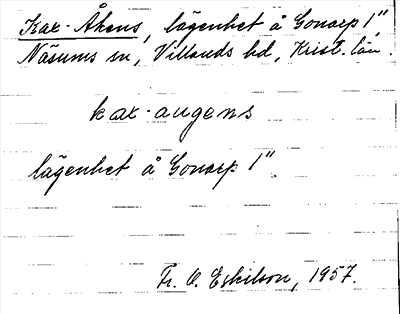 Kax-Åkens, lägenhet å Gonarp 1",
Näsums sn, Villands hd, Krist. län.
kax-augens
lägenhet å Gonarp 1".
Fr. O. Eskilson, 1957.